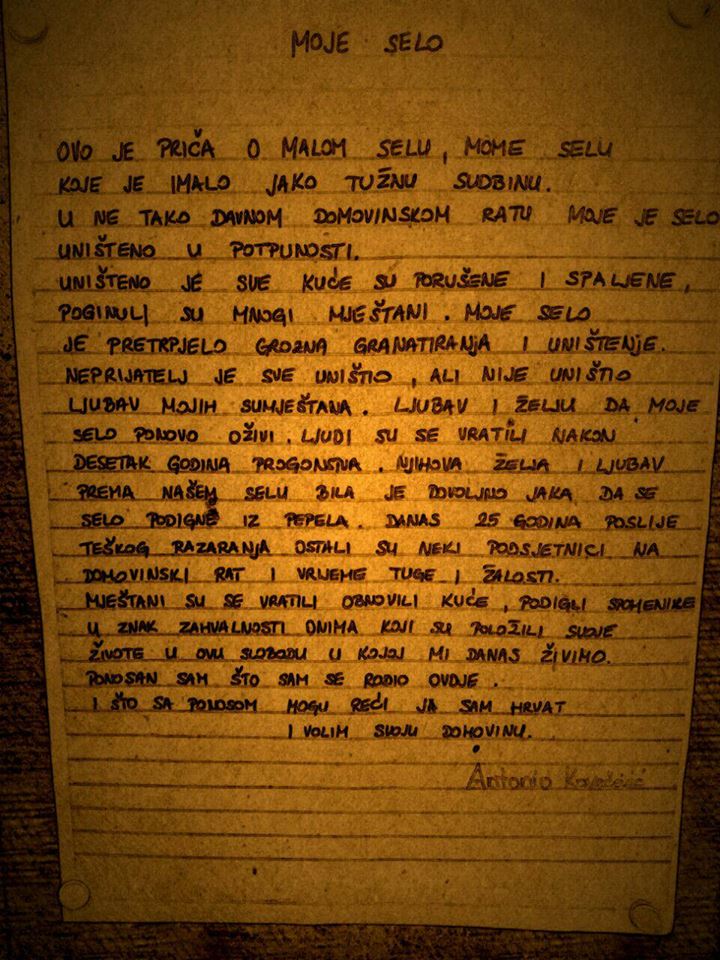 MOJE SELO
OVO JE PRIČA O MALOM SELU, MOME SELU
KOJE JE IMALO JAKO TUŽNU SUDBINU.
U NE TAKO DAVNOM DOMOVINSKOM RATU MOJE JE SELO
UNIŠTENO U POTPUNOSTI.
UNIŠTENO JE SVE KUĆE SU PORUŠENE I SPALJENE,
POGINULI SU MNOGI MJEŠTANI. MOJE SELO
JE PRETRPJELO GROZNA GRANATIRANJA I UNIŠTENJE.
NEPRIJATELJ JE SVE UNIŠTIO, ALI NIJE UNIŠTIO
LJUBAV MOJIH SUMJEŠTANA. LJUBAV I ŽELJU DA MOJE
SELO PONOVO OŽIVI. LJUDI SU SE VRATILI NAKON
DESETAK GODINA PROGONSTVA. NJIHOVA ŽELJA I LJUBAV
PREMA NAŠEM SELU BILA JE DOVOLJNO JAKA DA SE
SELO PODIGNE IZ PEPELA. DANAS 25 GODINA POSLIJE
TEŠKOG RAZARANJA OSTALI SU NEKI PODSJETNICI NA
DOMOVINSKI RAT I VRIJEME TUGE I ŽALOSTI.
MJEŠTANI SU SE VRATILI OBNOVILI KUĆE, PODIGLI SPOMENIKE
U ZNAK ZAHVALNOSTI ONIMA KOJI SU POLOŽILI SVOJE
ŽIVOTE U OVU SLOBODU U KOJOJ MI DANAS ŽIVIMO.
PONOSAN SAM ŠTO SAM SE RODIO OVDJE.
I ŠTO SA PONOSOM MOGU REĆI JA SAM HRVAT
I VOLIM SVOJU DOMOVINU.
Antonio